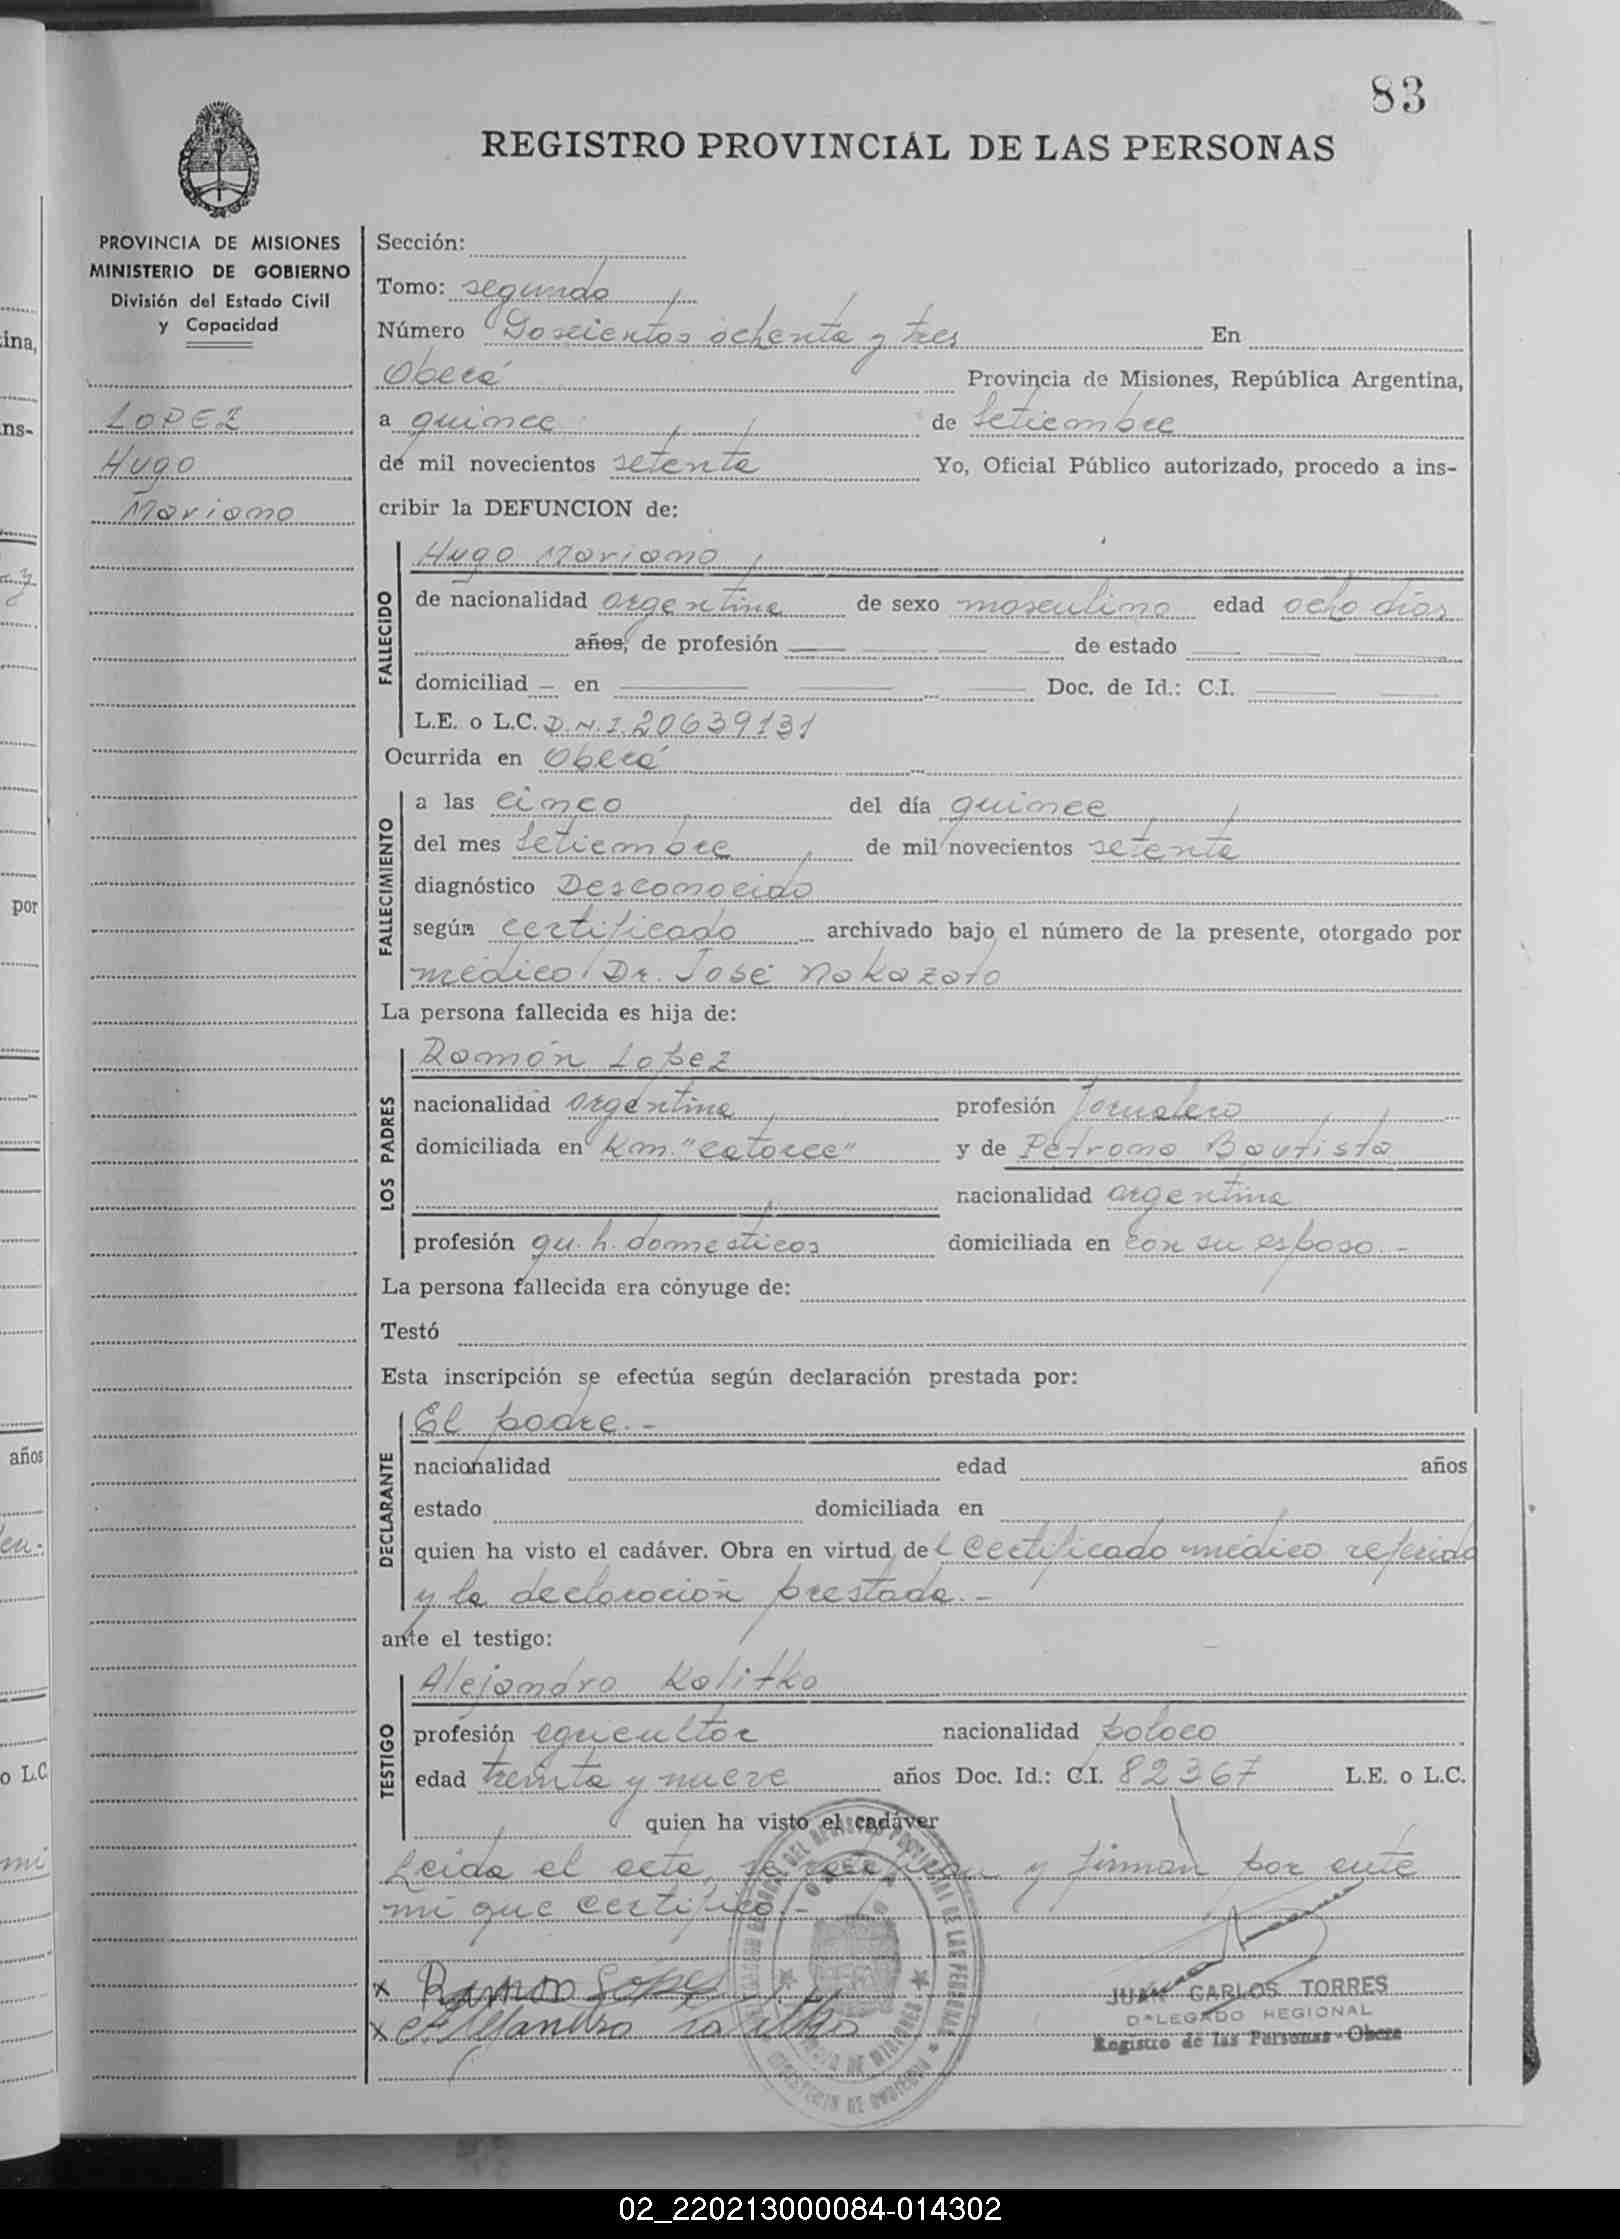 83
REGISTRO PROVINCIAL DE LAS PERSONAS
PROVINCIA DE MISIONES
MINISTERIO DE GOBIERNO
División del Estado Civil
y Capacidad
LOPEZ
Hugo
Mariano
Sección:
Tomo: segundo
Número Doscientos ochenta y tres En
Oberá Provincia de Misiones, República Argentina,
a quince de Setiembre
de mil novecientos setenta Yo, Oficial Público autorizado, procedo a ins-
cribir la DEFUNCION de:
FALLECIDO
Hugo Mariano
de nacionalidad argentina de sexo masculino edad ocho días
años, de profesión de estado
domiciliad – en Doc. de Id.: C.I.
L.E. o L.C. D.N.I. 20639131
Ocurrida en Oberá
FALLECIMIENTO
a las cinco del día quince
del mes Setiembre de mil novecientos setenta
diagnóstico Desconocido
según certificado archivado bajo el número de la presente, otorgado por
médico Dr. José Nakazato
La persona fallecida es hija de:
LOS PADRES
Ramón Lopez
nacionalidad argentina profesión Jornalero
domiciliada en Km. "catorce" y de Petrona Bautista
nacionalidad argentina
profesión qu. h. domesticos domiciliada en con su esposo.-
La persona fallecida era cónyuge de:
Testó
Esta inscripción se efectúa según declaración prestada por:
DECLARANTE
El padre.-
nacionalidad edad años
estado domiciliada en
quien ha visto el cadáver. Obra en virtud del Certificado médico referido
y la declaración prestada.-
ante el testigo:
TESTIGO
Alejandro Kalitko
profesión agricultor nacionalidad polaco
edad treinta y nueve años Doc. Id.: C.I. 82367 L.E. o L.C.
quien ha visto el cadáver
Leida el acta, se y firman por ante
mi que certifico.-
x Ramon Lopez
x
JUAN CARLOS TORRES
DELEGADO REGIONAL
Registro de las Personas - Obera
ina,
ns-
por
años
o L.C.
mi
02_220213000084-014302